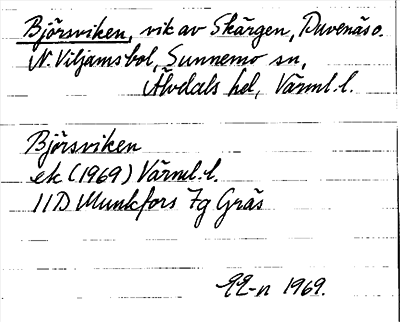 Björsviken, vik av Skärgen, Duvenäs o.
N. Viljamsbol, Sunnemo sn,
Älvdals hd, Värml. l.
Björsviken
ek (1969) Värml. l.
11D Munkfors 7g Gräs
1969.